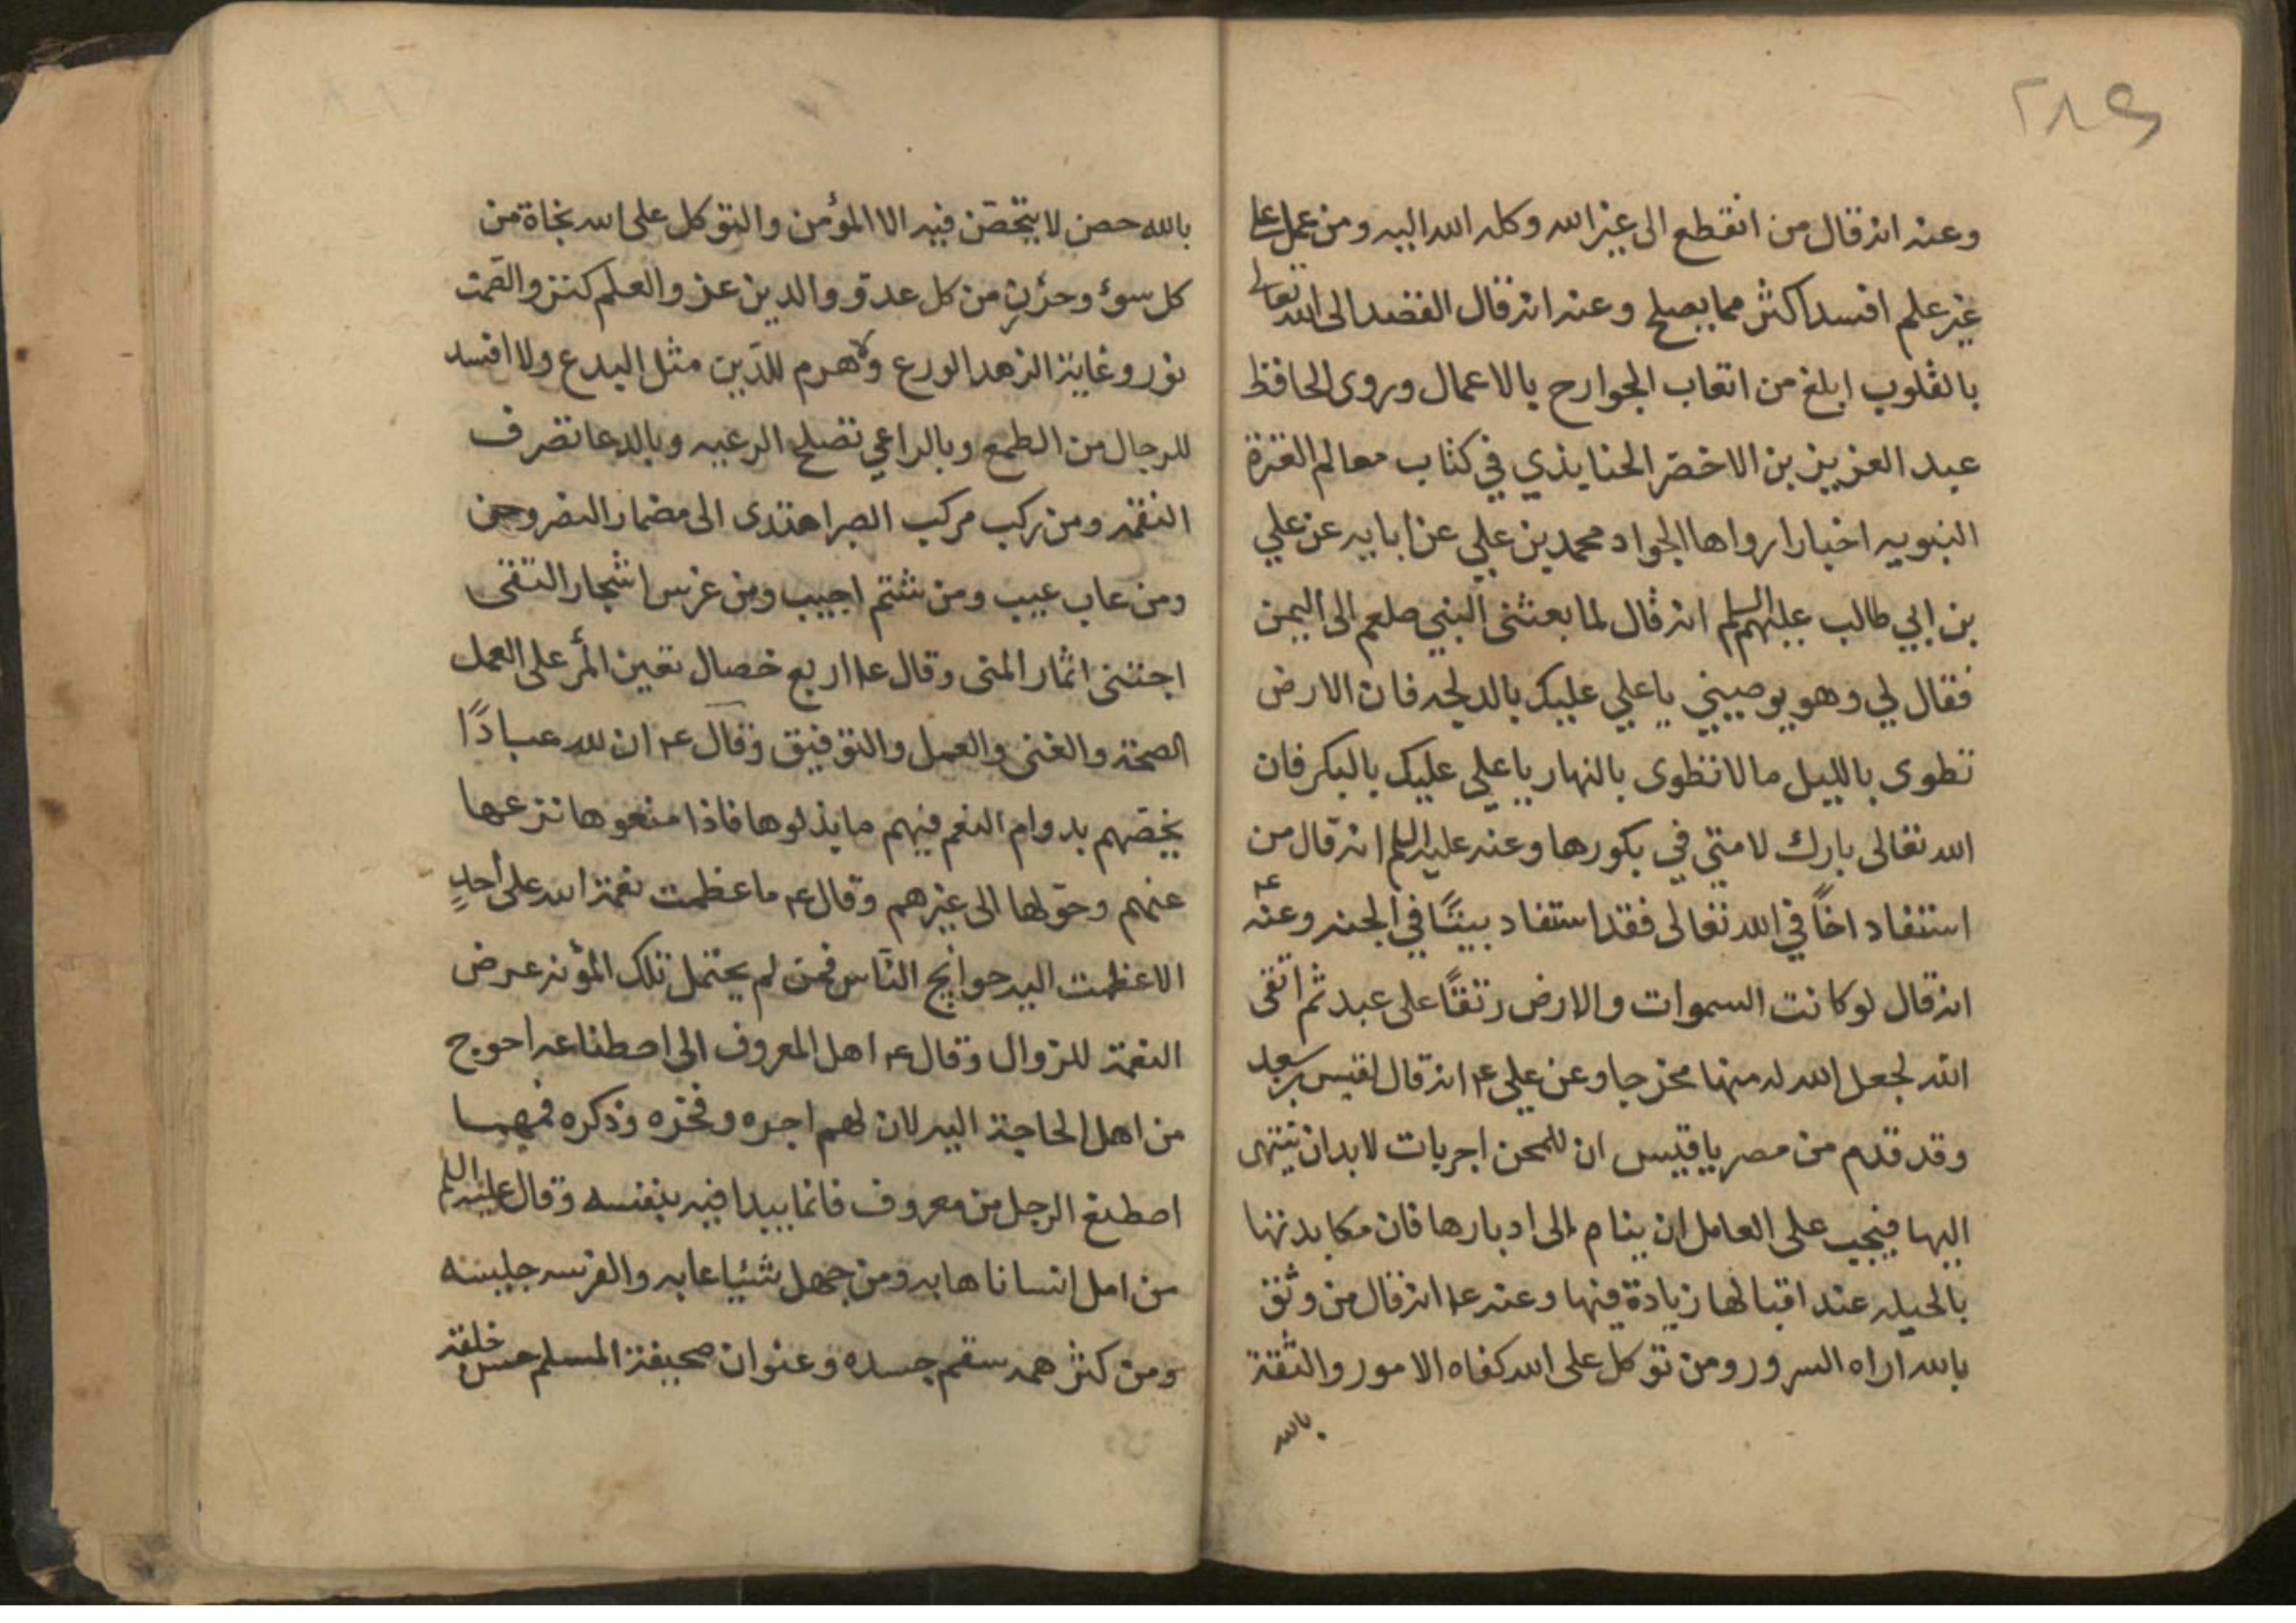 ٢٨٩
وعنه انه قال من انقطع الى غير الله وكله الله اليه ومن عمل على
غير علم افسد اكثر مما يصلح وعنه انه قال القصد الى الله تعالى
بالقلوب ابلغ من اتعاب الجوارح بالاعمال وروى الحافظ
عبد العزيز بن الاخضر الحنايذي في كتاب معالم العترة
النبويه اخبارا رواها الجواد محمد بن علي عن ابايه عن علي
بن ابي طالب عليهم السلم انه قال لما بعثنى النبي صلعم الى اليمن
فقال لي وهو يوصيني يا علي عليك بالدلجه فان الارض
تطوى بالليل مالا تطوى بالنهار يا علي عليك بالبكر فان
الله تعالى بارك لامتي في بكورها وعنه عليه السلم انه قال من
استفاد اخاً في الله تعالى فقد استفاد بيتًا في الجنه وعنه ع
انه قال لو كانت السموات والارض رتقًا على عبد ثم اتقى
الله لجعل الله له منها مخرجا وعن علي ع انه قال لقيس بن سعد
وقد قدم من مصر يا قيس ان للمحن اجريات لا بد ان ينتهى
اليها فيجب على العامل ان ينام الى ادبارها فان مكايدتها
بالحيله عند اقبالها زيادة فيها وعنه ع انه قال من وثق
بالله اراه السرور ومن توكل على الله كفاه الامور والثقة
بالله
بالله حصن لا يتحصّن فيه الا المؤمن والتوكل على الله نجاة من
كل سوء وحرزٍ من كل عدوّ والدين عز والعلم كنز والصّمت
نور وغاية الزهد الورع ولا هدم للدّين مثل البدع ولا افسد
للرجال من الطمع وبالراعي تصلح الرعيه وبالدعا تصرف
النقمه ومن ركب مركب الصبر اهتدى الى مضمار النصر
ومن عاب عيب ومن شتم اجيب ومن غرس اشجار التقى
اجتنى اثمار المنى وقال ع اربع خصال تعين المرء على العمل
الصحة والغنى والعمل والتوفيق وقال ع ان لله عبادًا
يخصّهم بدوام النعم فيهم ما بذلوها فاذا منعوها نزعها
عنهم وحوّلها الى غيرهم وقال ع ما عظمت نعمة الله على أحدٍ
الا عظمت اليه حوايج النّاس فمن لم يحتمل تلك المؤنه عرض
النعمة للزوال وقال ع اهل المعروف الى اصطناعه احوج
من اهل الحاجة اليه لان لهم اجره وفخره وذكره فمهما
اصطنع الرجل من معروف فانما يبدا فيه بنفسه وقال عليه السلم
من امل انسانا هابه ومن جهل شيئا عابه والفرسه جليسه
ومن كثر همه سقم جسده وعنوان صحيفة المسلم حسن خلقه